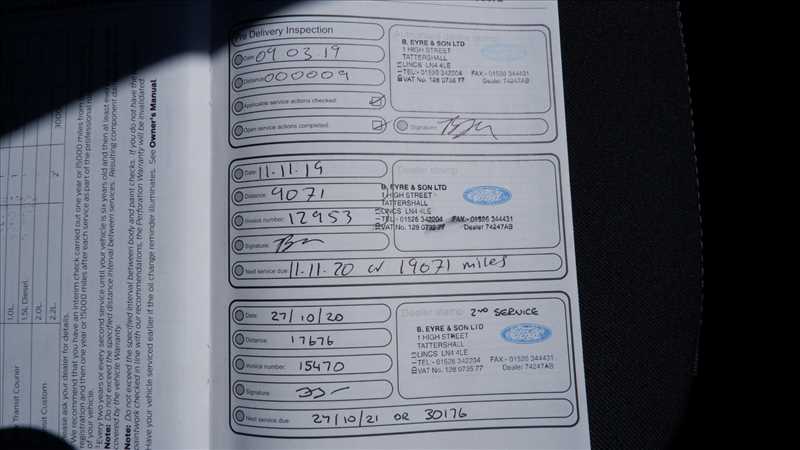 Pre Delivery Inspection
Date 09.03.19
Distance 000009
Applicable service actions checked
Open service actions completed
Signature
B. EYRE & SON LTD
1 HIGH STREET
TATTERSHALL
LINCS LN4 4LE
TEL - 01526 342204 FAX - 01526 344431
VAT No. 128 0735 77 Dealer 74247AB
Ford
Date 11.11.19
Distance 9071
Invoice number 12953
Signature
Next service due 11.11.20 or 19071 miles
Dealer stamp
B. EYRE & SON LTD
1 HIGH STREET
TATTERSHALL
LINCS LN4 4LE
TEL - 01526 342204 FAX - 01526 344431
VAT No. 128 0735 77 Dealer 74247AB
Ford
Date 27/10/20
Distance 17676
Invoice number 15470
Signature
Next service due 27/10/21 OR 30176
Dealer stamp 2ND SERVICE
B. EYRE & SON LTD
1 HIGH STREET
TATTERSHALL
LINCS LN4 4LE
TEL - 01526 342204 FAX - 01526 344431
VAT No. 128 0735 77 Dealer 74247AB
Ford
Transit Courier
1.0L
1.5L Diesel
2.0L
2.2L
ase ask your dealer for details.
We recommend that you have an interim check carried out one year or 15000 miles from
registration and then one year or 15000 miles after each service as part of the professional
of your vehicle.
Every two years or every second service until your vehicle is six years old and then at least
Note: Do not exceed the specified distance interval between services. Resulting component
covered by the vehicle Warranty.
Note: Do not exceed the specified interval between body and paint checks. If you do not have the
paintwork checked in line with our recommendations, the Perforation Warranty will be invalidated.
Have your vehicle serviced earlier if the oil change reminder illuminates. See Owner's Manual.